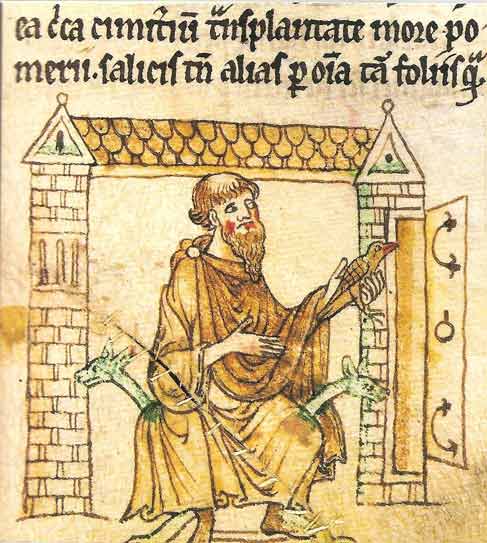 ea c̓ca cimit̓iū tͣnsplantate more po
merii. salicis tn̄ alias ꝑ oīa tā foliis qͣ